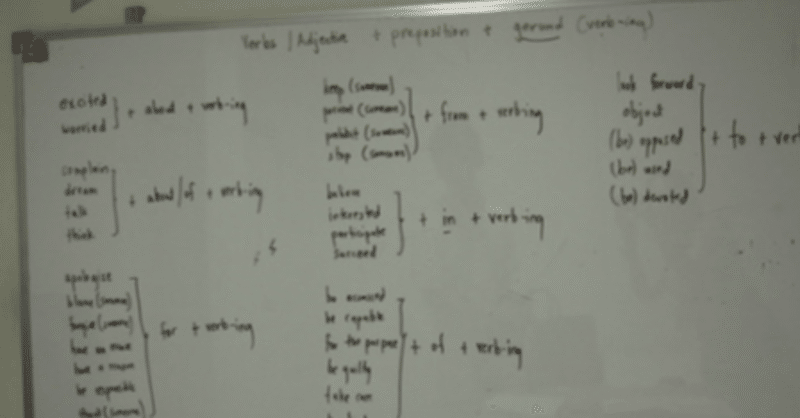 Verbs / Adjective + preposition + gerund (verb-ing)
excited
worried
+ about + verb-ing
complain
dream
talk
think
+ about/of + verb-ing
apologize
blame (someone)
forgive (someone)
have an excuse
have a reason
be responsible
thank (someone)
for + verb-ing
keep (someone)
prevent (someone)
prohibit (someone)
stop (someone)
+ from + verb-ing
believe
interested
participate
succeed
+ in + verb-ing
be accused
be capable
for the purpose
be guilty
take care
+ of + verb-ing
look forward
object
(be) opposed
(be) used
(be) devoted
+ to + verb